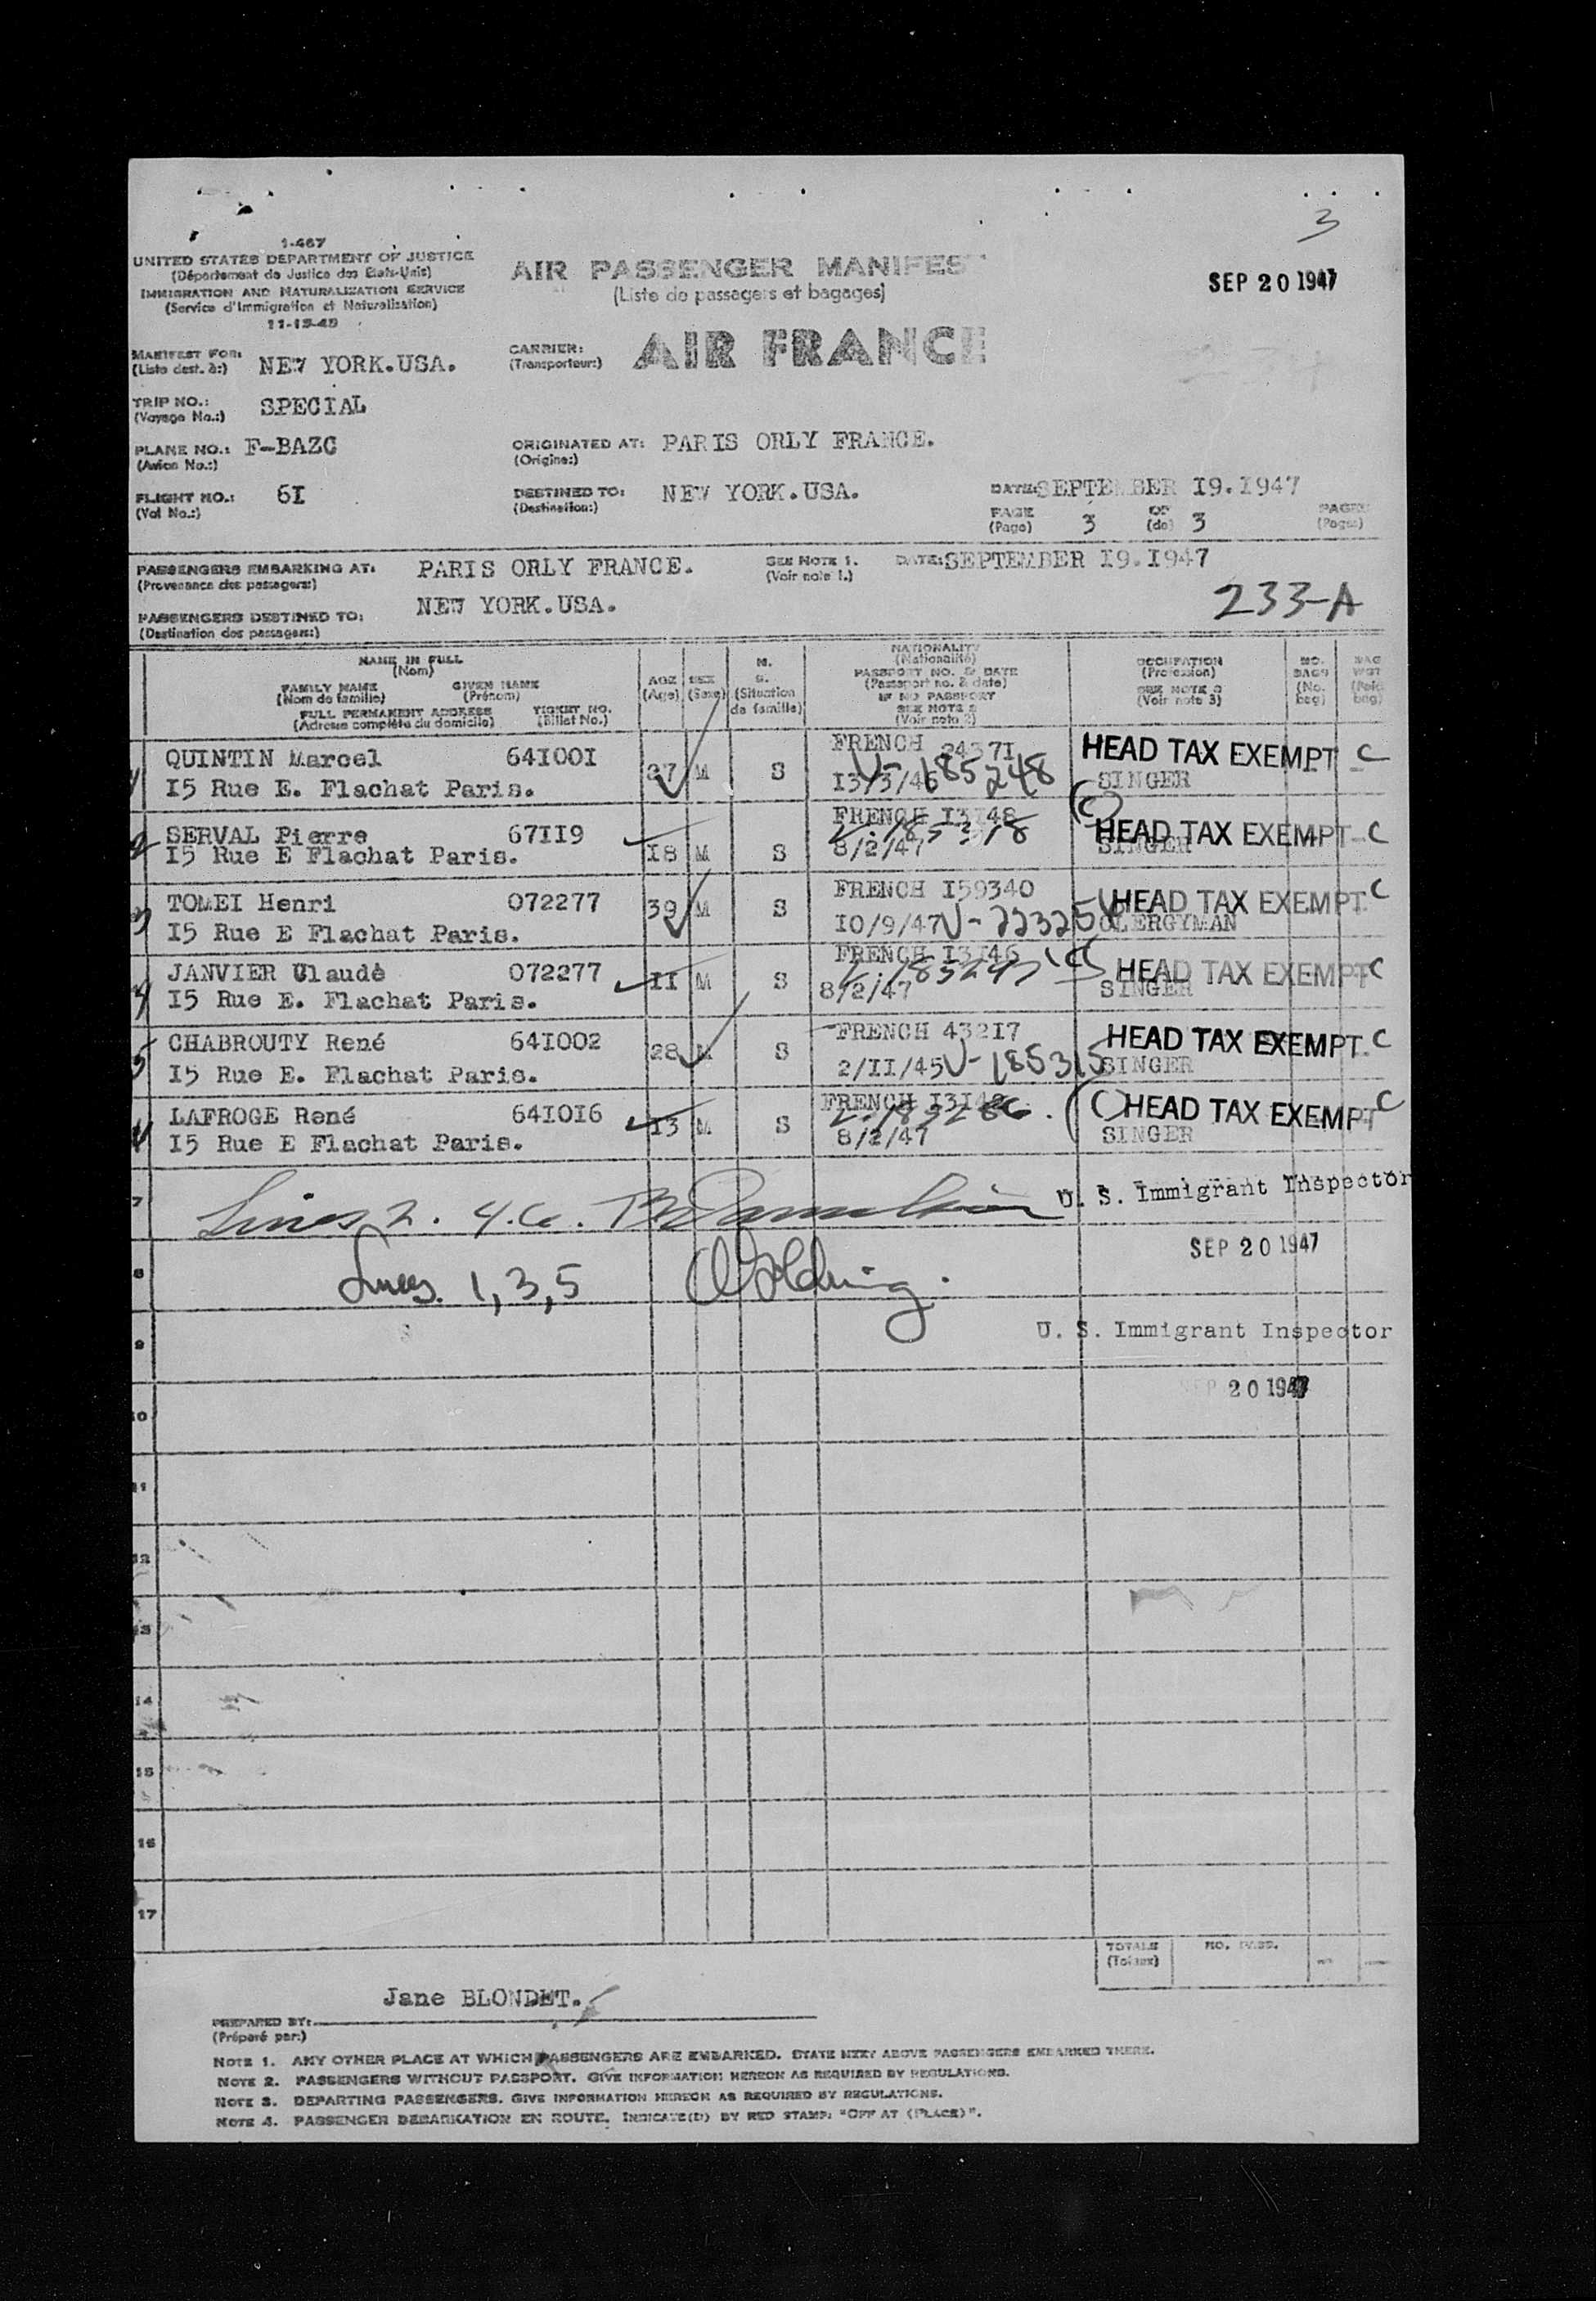 3
1-467
UNITED STATES DEPARTMENT OF JUSTICE
(Département de Justice des Etats-Unis)
IMMIGRATION AND NATURALIZATION SERVICE
(Service d'Immigration et Naturalisation)
11-15-45
AIR PASSENGER MANIFEST
(Liste de passagers et bagages)
SEP 20 1947
MANIFEST FOR: NEW YORK.USA.
(Liste dest. à:)
CARRIER: AIR FRANCE
(Transporteur:)
TRIP NO.: SPECIAL
(Voyage No.:)
PLANE NO.: F-BAZC
(Avion No.:)
ORIGINATED AT: PARIS ORLY FRANCE.
(Origine:)
FLIGHT NO.: 6I
(Vol No.:)
DESTINED TO: NEW YORK.USA.
(Destination:)
DATE: SEPTEMBER I9.I947
PAGE 3 OF 3 PAGES
(Page) (de) (Pages)
PASSENGERS EMBARKING AT: PARIS ORLY FRANCE.
(Provenance des passagers:)
SEE NOTE 1. DATE: SEPTEMBER I9.I947
(Voir note 1.)
PASSENGERS DESTINED TO: NEW YORK.USA.
(Destination des passagers:)
233-A
NAME IN FULL
(Nom)
FAMILY NAME GIVEN NAME
(Nom de famille) (Prénom)
FULL PERMANENT ADDRESS TICKET NO.
(Adresse complète du domicile) (Billet No.)
AGE
(Age)
SEX
(Sexe)
M.
S.
(Situation de famille)
NATIONALITY
(Nationalité)
PASSPORT NO. & DATE
(Passeport no. & date)
IF NO PASSPORT
SEE NOTE 2
(Voir note 2)
OCCUPATION
(Profession)
SEE NOTE 3
(Voir note 3)
NO. BAGS
(No. bag)
BAG WGT
(Poid bag)
1 QUINTIN Marcel 64I00I 27 M S FRENCH 2437I HEAD TAX EXEMPT C
I5 Rue E. Flachat Paris. I3/3/46 V-185248 SINGER
2 SERVAL Pierre 67II9 I8 M S FRENCH I3I48 (C) HEAD TAX EXEMPT C
I5 Rue E Flachat Paris. 8/2/47 SINGER
3 TOMEI Henri 072277 39 M S FRENCH I59340 HEAD TAX EXEMPT C
I5 Rue E Flachat Paris. I0/9/47 CLERGYMAN
4 JANVIER Claude 072277 II M S FRENCH I3I46 HEAD TAX EXEMPT C
I5 Rue E. Flachat Paris. 8/2/47 SINGER
5 CHABROUTY René 64I002 28 M S FRENCH 432I7 HEAD TAX EXEMPT C
I5 Rue E. Flachat Paris. 2/II/45 V-185315 SINGER
LAFROGE René 64I0I6 I3 M S FRENCH HEAD TAX EXEMPT C
I5 Rue E Flachat Paris. 8/2/47 SINGER
7 Lines 2. 4. 6. U. S. Immigrant Inspector
SEP 20 1947
8 Lines. 1, 3, 5
U. S. Immigrant Inspector
9
SEP 20 1947
10
11
12
13
14
15
16
17
TOTALS
(Totaux)
Jane BLONDET.
PREPARED BY:
(Préparé par:)
NOTE 1. ANY OTHER PLACE AT WHICH PASSENGERS ARE EMBARKED. STATE NEXT ABOVE PASSENGERS EMBARKED THERE.
NOTE 2. PASSENGERS WITHOUT PASSPORT. GIVE INFORMATION HEREON AS REQUIRED BY REGULATIONS.
NOTE 3. DEPARTING PASSENGERS. GIVE INFORMATION HEREON AS REQUIRED BY REGULATIONS.
NOTE 4. PASSENGER DEBARKATION EN ROUTE. INDICATE(D) BY RED STAMP: "OFF AT (PLACE)".